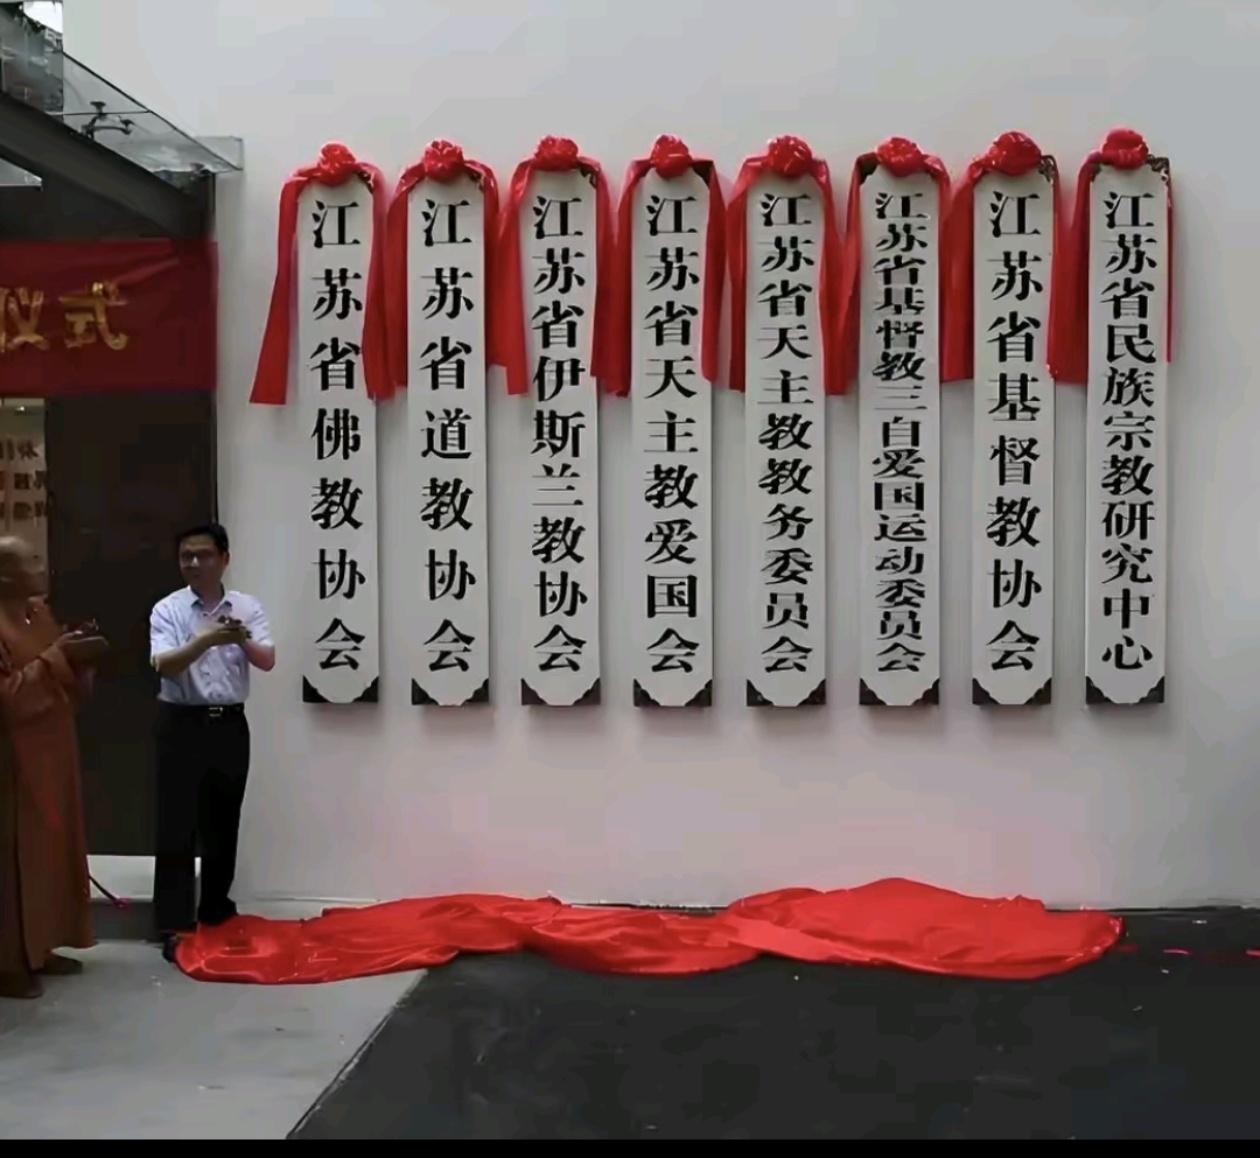 仪式
江苏省佛教协会
江苏省道教协会
江苏省伊斯兰教协会
江苏省天主教爱国会
江苏省天主教教务委员会
江苏省基督教三自爱国运动委员会
江苏省基督教协会
江苏省民族宗教研究中心